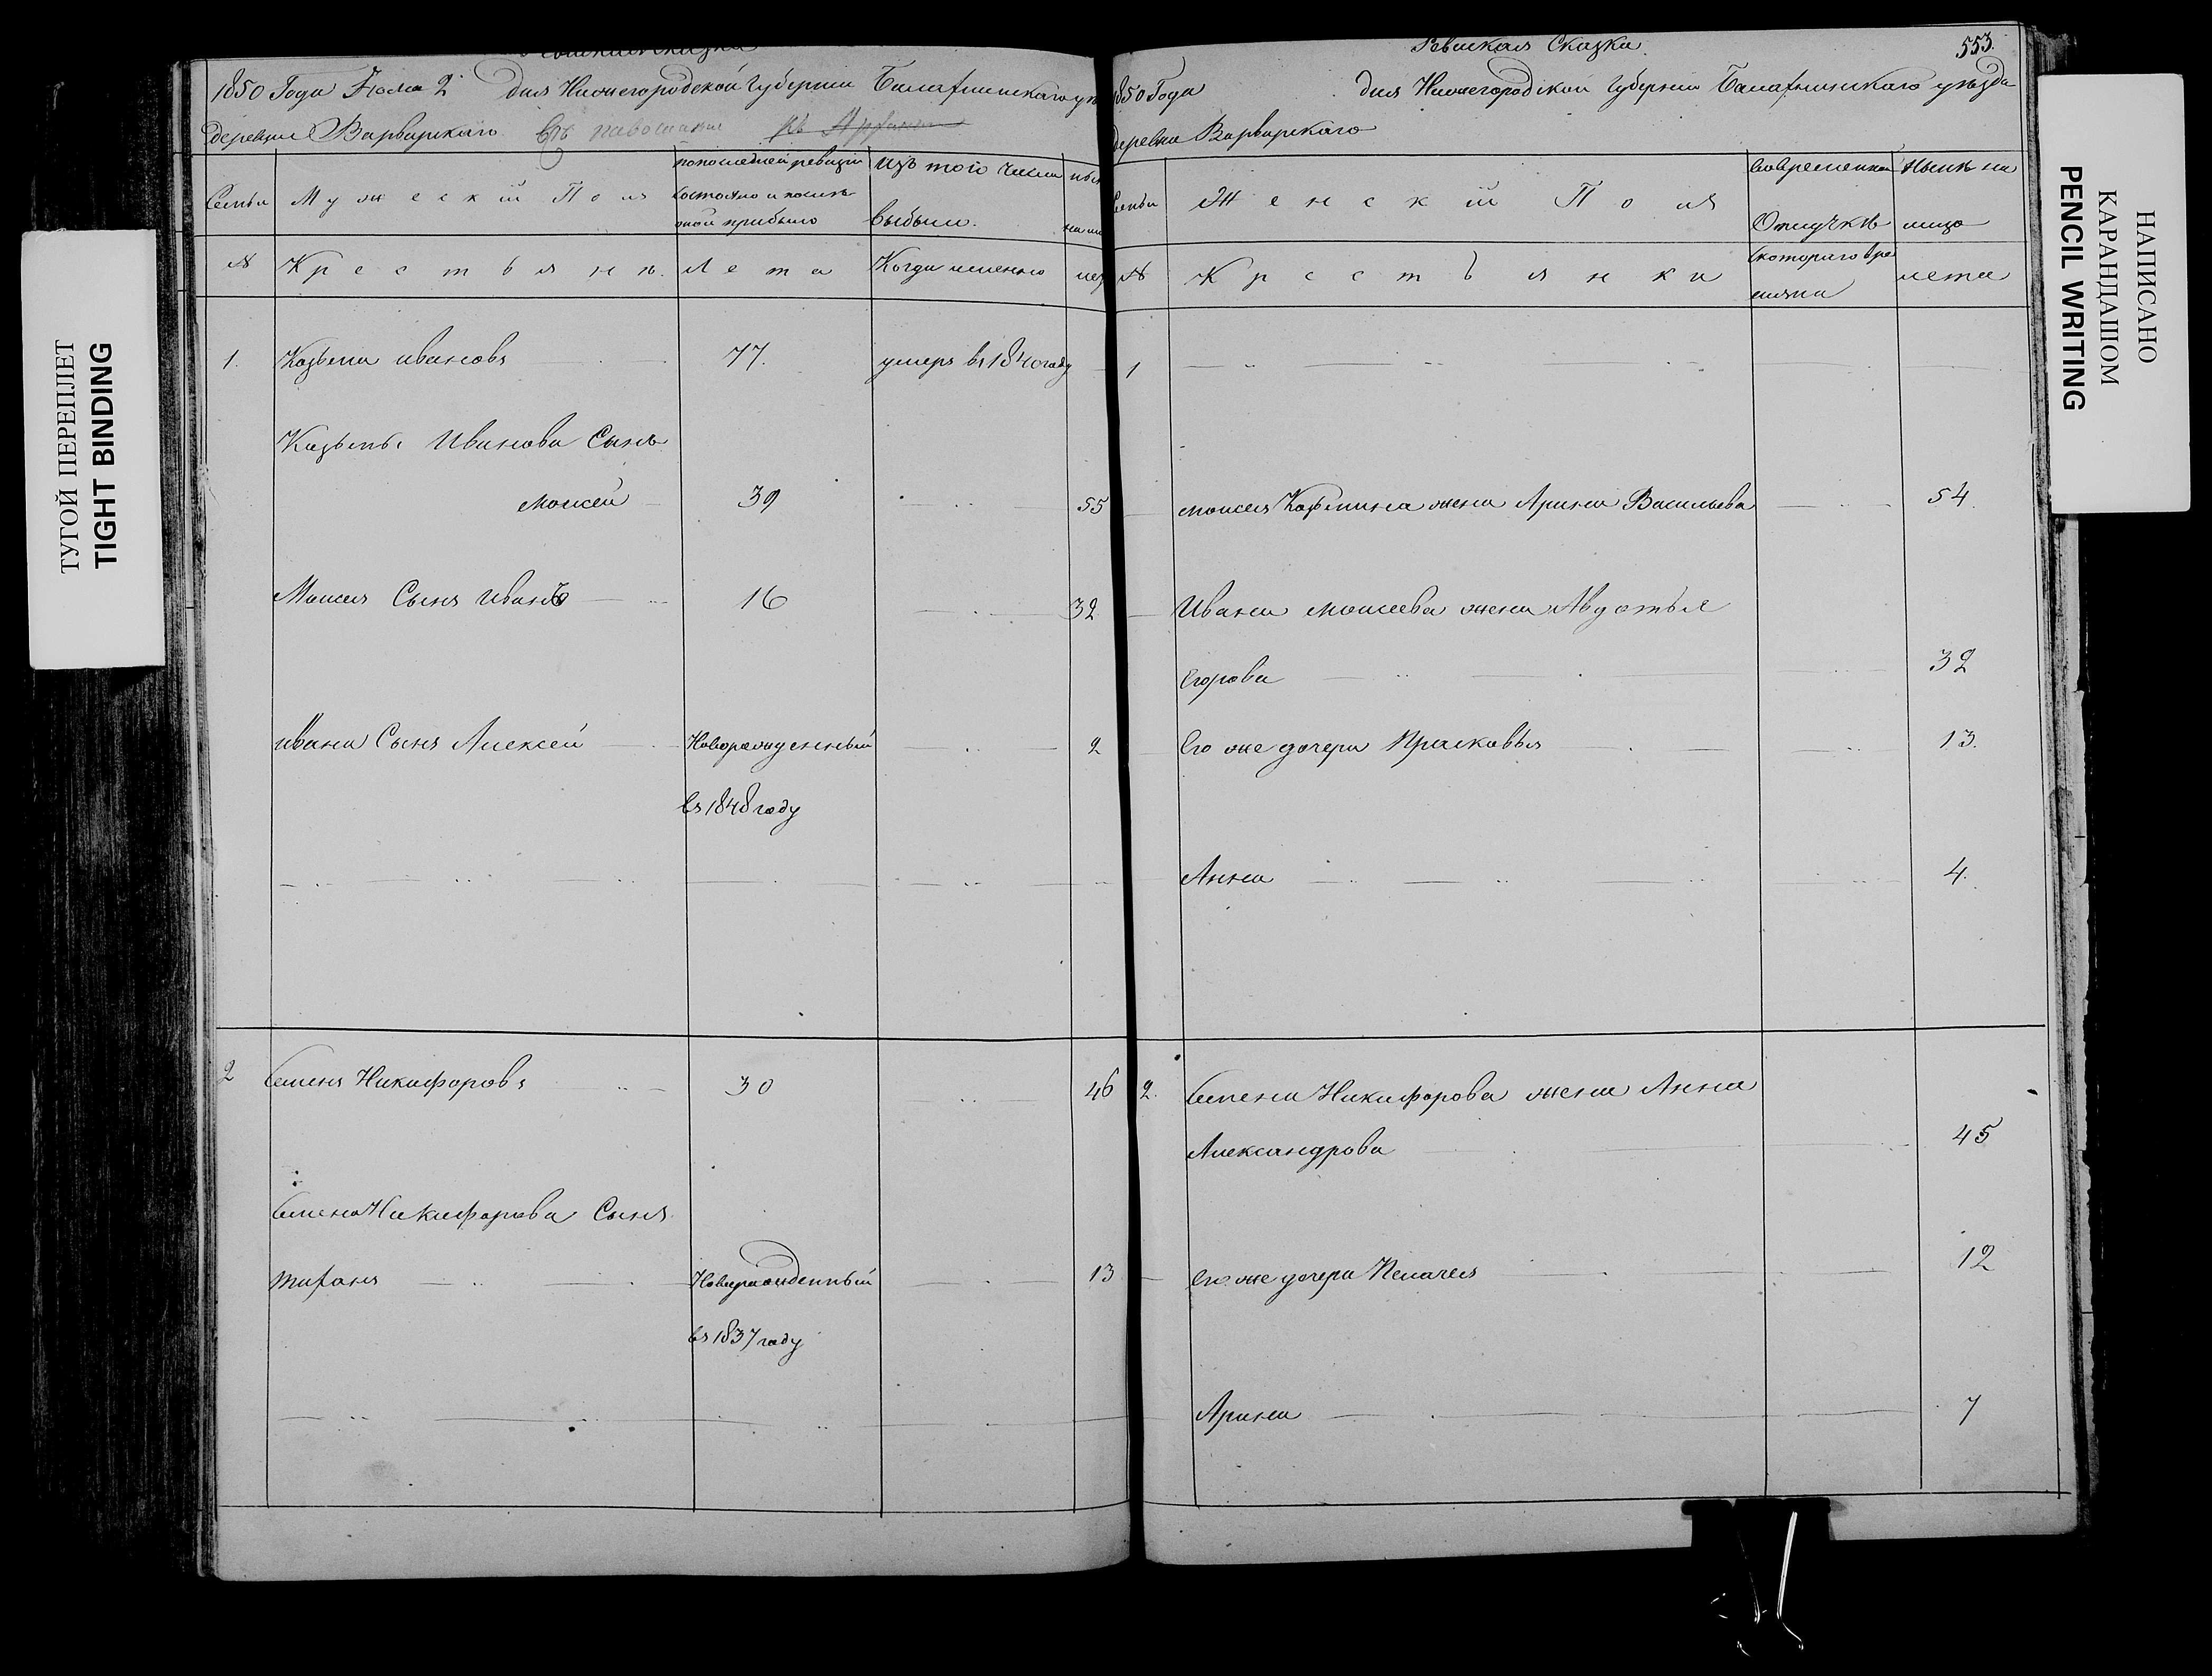 ТУГОЙ ПЕРЕПЛЕТ
TIGHT BINDING
Ревизская сказка
1850 Года Июля 2 дня Нижегородской Губернии Балахнинского
деревни Варварского
Семьи
Мужеский Полъ
по последней ревизiи состояло и после оной прибыло
изъ того числа выбыло.
№
Крестьяне.
Лета
Когда именно
1.
Козьма ивановъ
77.
умеръ въ 1840 году
Козьмы Иванова Сынъ
моисей
39
55
Моисея Сынъ иванъ
16
32
ивана Сынъ Алексей
Новорожденный
2
въ 1848 году
2
Семенъ Никифоровъ
30
46
Семена Никифорова Сынъ
Новорожденный
13
въ 1837 году
Ревиская Сказка
553.
1850 Года дня Нижегородской Губернии Балахнинского уезда
деревни Варварского
Семьи
Женский Полъ
Во временной Отлучке
Ныне на лицо
№
Крестьянки
с которого времяни
лета
1
моисея Козмина жена Арина Васильева
54
Ивана моисеева жена Авдотья
Егорова
32
Его же дочери Прасковья
13.
Анна
4.
2.
Семена Никифорова жена Анна
Александрова
45
Его же дочери Пелагея
12
Арина
7
НАПИСАНО
КАРАНДАШОМ
PENCIL WRITING